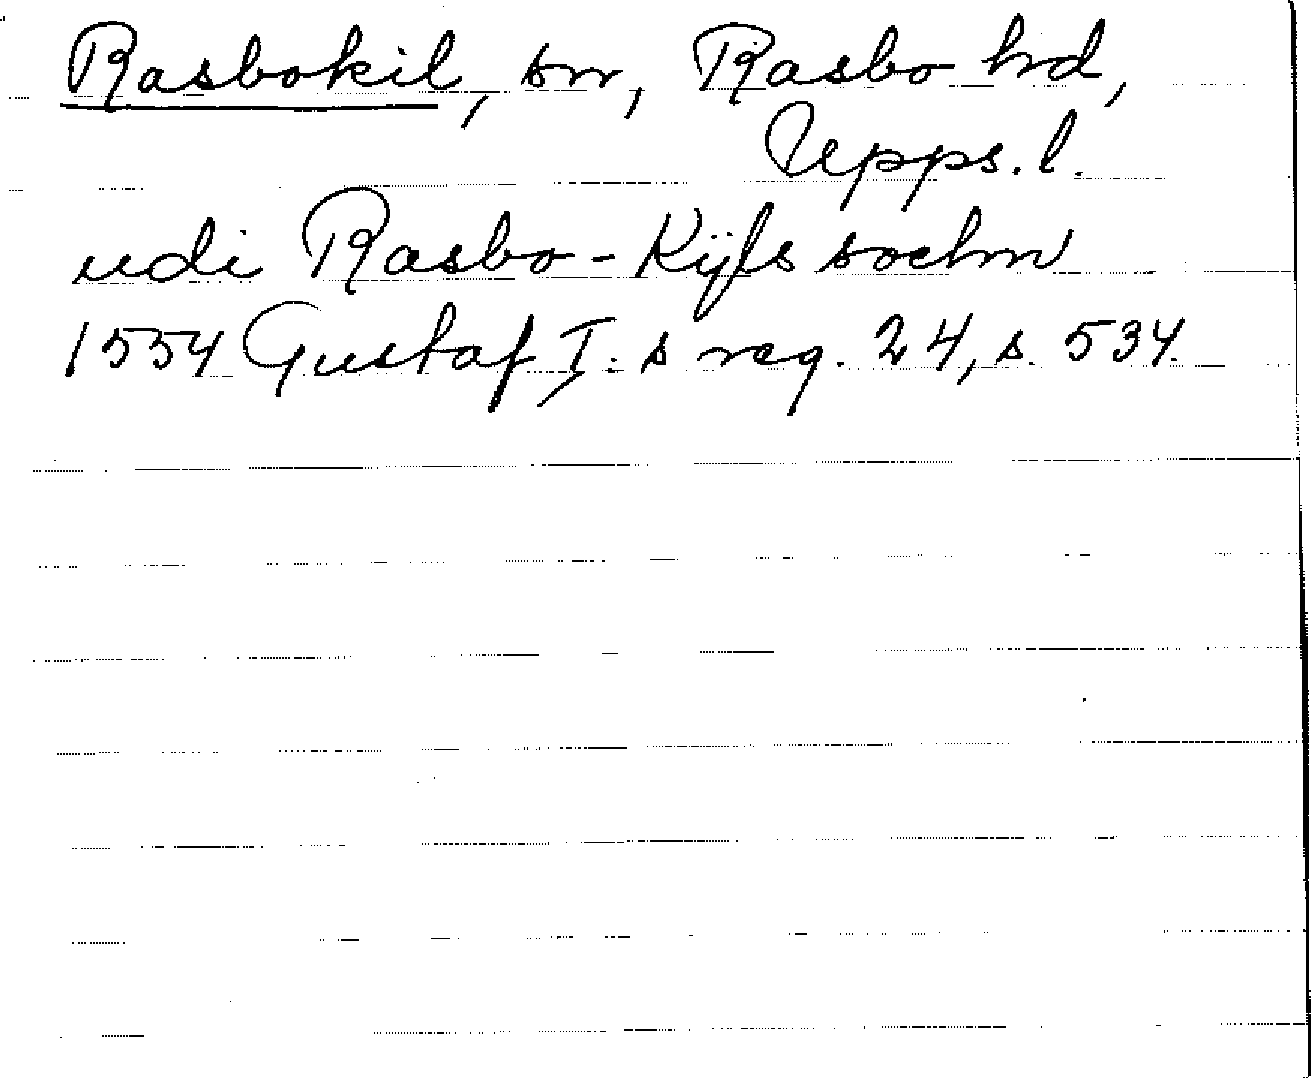 Rasbokil, sn, Rasbo hd,
Upps. l.
udi Rasbo-Kijls sochn
1554 Gustaf I:s reg. 24, s. 534.